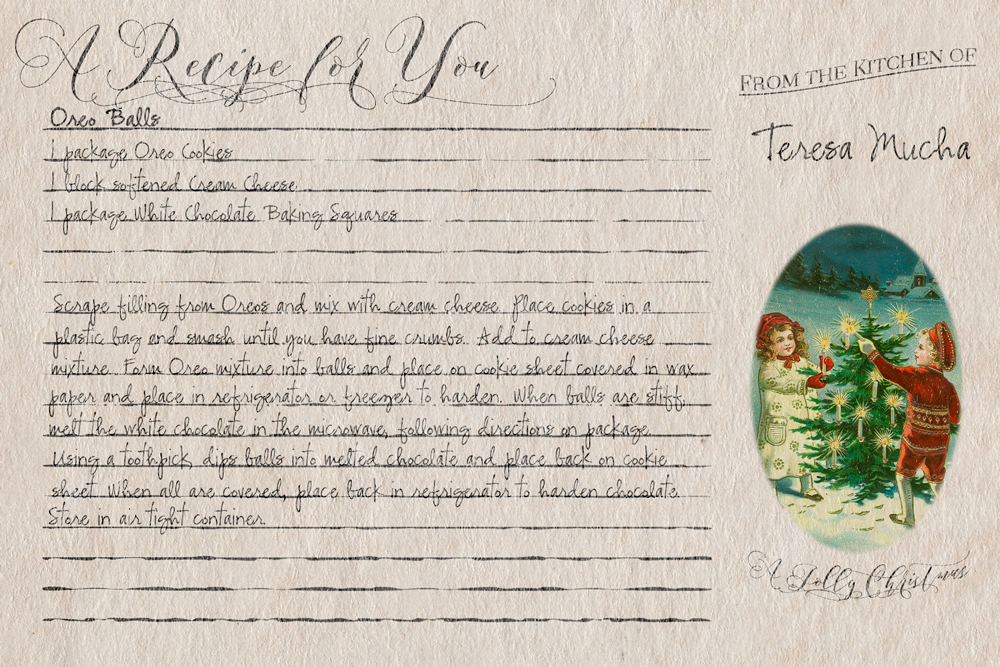 A Recipe for You
FROM THE KITCHEN OF
Teresa Mucha
Oreo Balls
1 package Oreo Cookies
1 block softened Cream Cheese
1 package White Chocolate Baking Squares
Scrape filling from Oreos and mix with cream cheese. Place cookies in a
plastic bag and smash until you have fine crumbs. Add to cream cheese
mixture. Form Oreo mixture into balls and place on cookie sheet covered in wax
paper and place in refrigerator or freezer to harden. When balls are stiff,
melt the white chocolate in the microwave, following directions on package.
Using a toothpick, dips balls into melted chocolate and place back on cookie
sheet. When all are covered, place back in refrigerator to harden chocolate.
Store in air tight container.
A Jolly Christmas